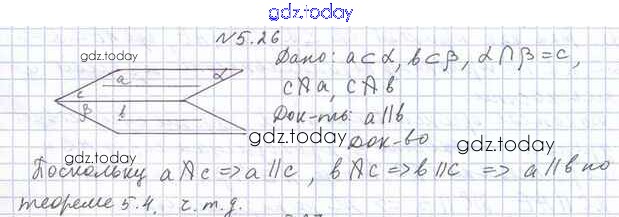 gdz.today
N 5.26
gdz.today
Дано: a⊂α, b⊂β, α∩β=c,
a α
c∦a, c∦b
c
β
b
Док-ть: a∥b
gdz.today
Док-во
gdz.today
gdz.today
Поскольку a∦c => a∥c, b∦c => b∥c => a∥b по
теореме 5.4. ч.т.д.